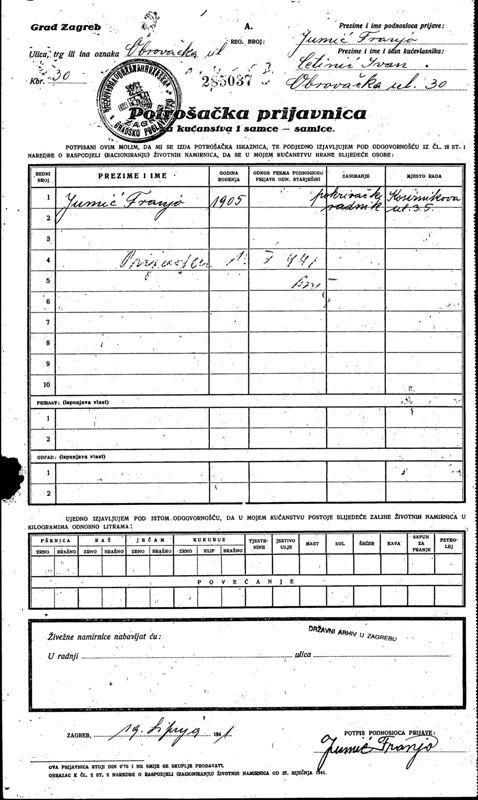 Grad Zagreb
A.
Prezime i ime podnosioca prijave:
Jumić Franjo
Ulica, trg ili ina oznaka Obrovačka ul
REG. BROJ:
Prezime i ime i stan kućevlasnika:
Kbr. 30
285037
Četinić Ivan
Obrovačka ul. 30
Potrošačka prijavnica
za kućanstva i samce — samice.
POTPISANI OVIM MOLIM, DA MI SE IZDA POTROŠAČKA ISKAZNICA, TE PODJEDNO IZJAVLJUJEM POD ODGOVORNOŠĆU IZ ČL. 18 ST. 1
NAREDBE O RASPODJELI (RACIONIRANJU) ŽIVOTNIH NAMIRNICA, DA SE U MOJEM KUĆANSTVU HRANE SLIJEDEĆE OSOBE:
REDNI BROJ
PREZIME I IME
GODINA ROĐENJA
ODNOS PREMA PODNOSIOCU PRIJAVE ODN. STARJEŠINI
ZANIMANJE
MJESTO RADA
1 Jumić Franjo 1905 pokrivački radnik ul. 35.
2
3
4
5
6
7
8
9
10
PRIRAST: (ispunjava vlast)
1
2
OTPAD: (ispunjava vlast)
1
2
UJEDNO IZJAVLJUJEM POD ISTOM ODGOVORNOŠĆU, DA U MOJEM KUĆANSTVU POSTOJE SLIJEDEĆE ZALIHE ŽIVOTNIH NAMIRNICA U
KILOGRAMIMA ODNOSNO LITRAMA:
PŠENICA RAŽ JEČAM KUKURUZ TJESTENINE JESTIVO ULJE MAST SOL ŠEĆER KAVA SAPUN ZA PRANJE PETROLEJ
ZRNO BRAŠNO ZRNO BRAŠNO ZRNO BRAŠNO ZRNO KLIP BRAŠNO
POVEĆANJE
Živežne namirnice nabavljat ću:
DRŽAVNI ARHIV U ZAGREBU
U radnji ulica
ZAGREB, 19. Lipnja 1941
POTPIS PODNOSIOCA PRIJAVE:
Jumić Franjo
OVA PRIJAVNICA STOJI DIN 0'75 I NE SMIJE SE SKUPLJE PRODAVATI.
OBRAZAC K ČL. 2 ST. 2 NAREDBE O RASPODJELI (RACIONIRANJU) ŽIVOTNIH NAMIRNICA OD 27. SIJEČNJA 1941.